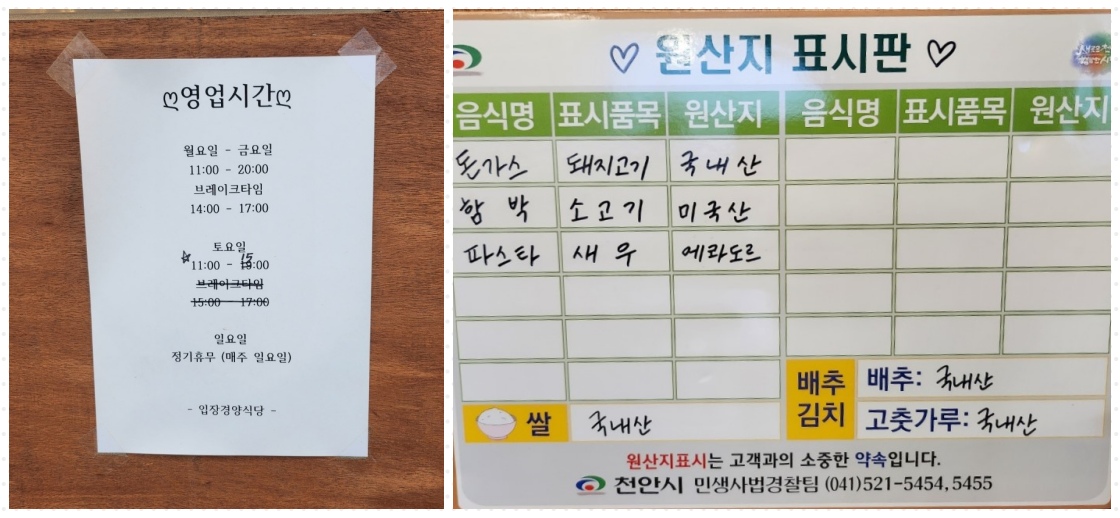 ღ영업시간ღ
월요일 - 금요일
11:00 - 20:00
브레이크타임
14:00 - 17:00
토요일
☆ 11:00 - 15:00
브레이크타임
15:00 - 17:00
일요일
정기휴무 (매주 일요일)
- 입장경양식당 -
♡ 원산지 표시판 ♡
음식명 표시품목 원산지 음식명 표시품목 원산지
돈가스 돼지고기 국내산
함박 소고기 미국산
파스타 새우 에콰도르
쌀 국내산
배추김치
배추: 국내산
고춧가루: 국내산
원산지표시는 고객과의 소중한 약속입니다.
천안시 민생사법경찰팀 (041)521-5454, 5455